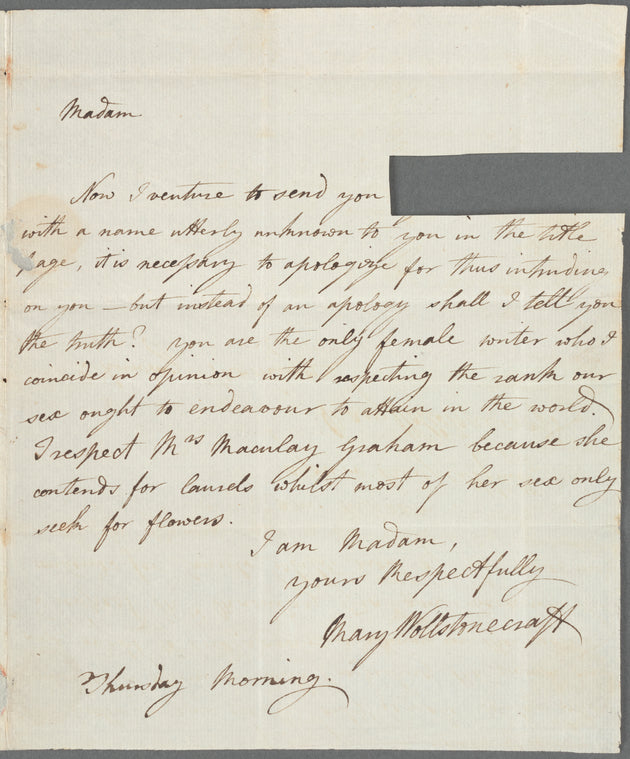 Madam
Now I venture to send you
with a name utterly unknown to you in the title
page, it is necessary to apologize for thus intruding
on you — but instead of an apology shall I tell you
the truth? you are the only female writer who I
coincide in opinion with respecting the rank our
sex ought to endeavour to attain in the world.
I respect Mrs Maculay Graham because she
contends for laurels whilst most of her sex only
seek for flowers.
I am Madam,
yours Respectfully
Mary Wollstonecraft
Thursday Morning.